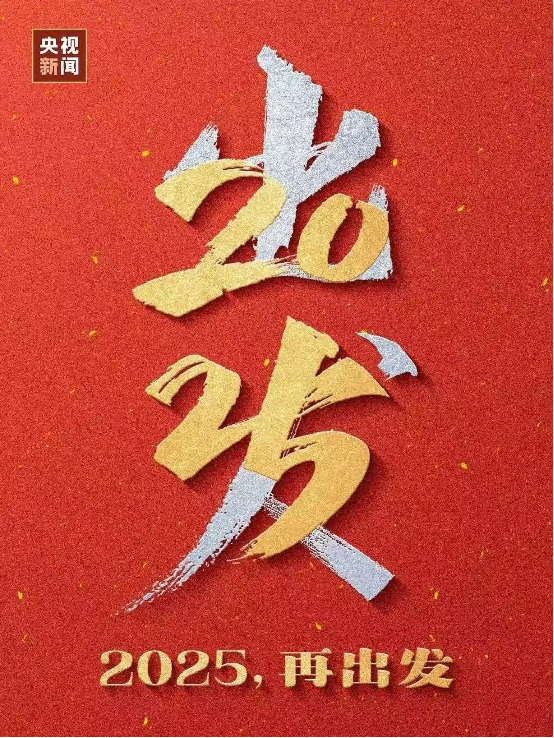 央视
新闻
出发
2025
2025,再出发